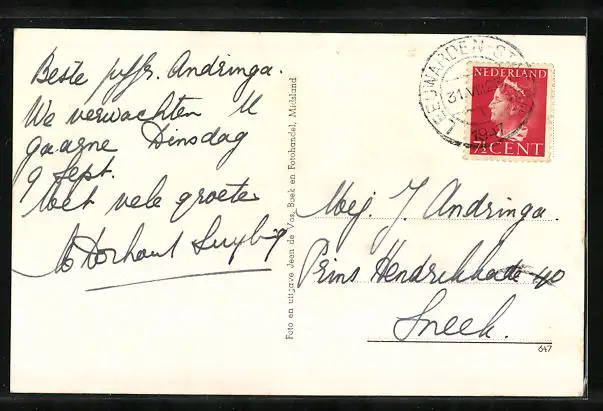 Beste juffr. Andringa.
We verwachten U
gaarne Dinsdag
9 Sept.
Met vele groete
Foto en uitgave Jeen de Vos, Boek en Fotohandel, Midsland
LEEUWARDEN
1947
NEDERLAND
7½ CENT
Mej. J. Andringa.
Prins Hendrikkade 40
Sneek.
647